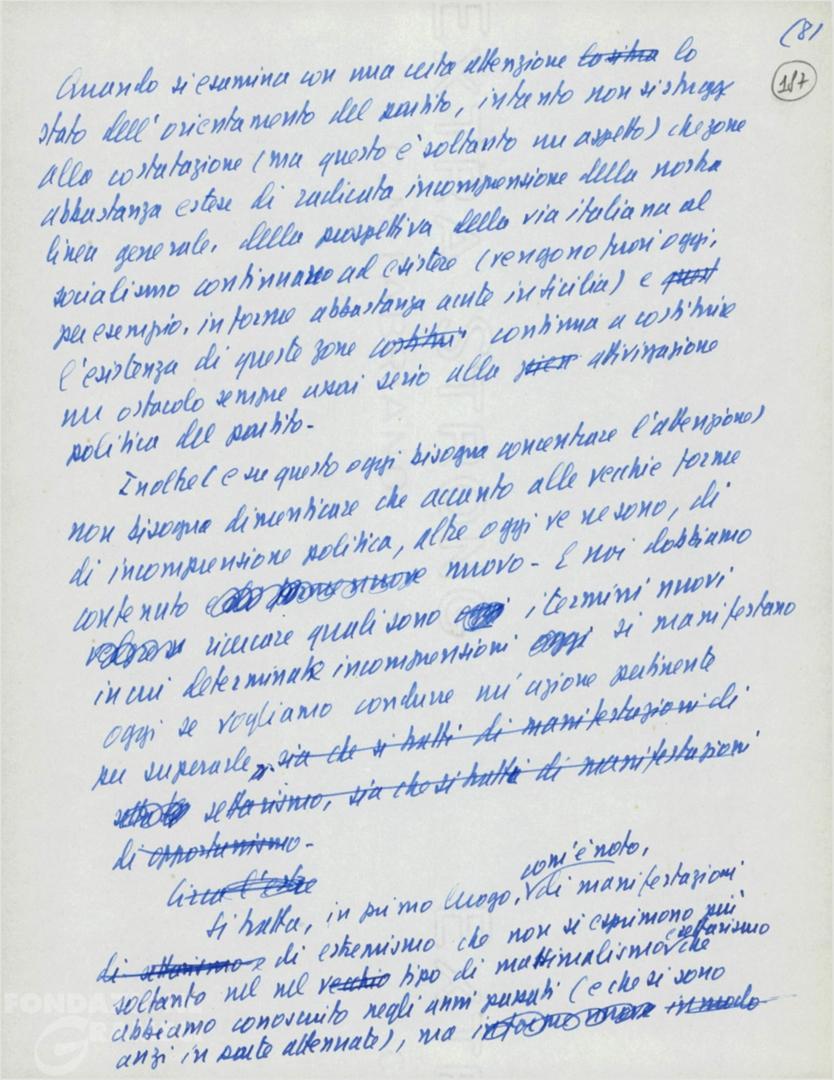 (8)
187
Quando si esamina con una certa attenzione la sitra lo
stato dell'orientamento del partito, intanto non si sfugge
alla costatazione (ma questo è soltanto un aspetto) che zone
abbastanza estese di radicata incomprensione della nostra
linea generale, della prospettiva della via italiana al
socialismo continuano ad esistere (vengono fuori oggi,
per esempio, in forme abbastanza acute in Sicilia) e quest
l'esistenza di queste zone costitui continua a costituire
un ostacolo sempre assai serio alla attivizzazione
politica del partito.
Inoltre (e su questo oggi bisogna concentrare l'attenzione)
non bisogna dimenticare che accanto alle vecchie forme
di incomprensione politica, altre oggi ve ne sono, di
contenuto nuovo. E noi dobbiamo
ricercare quali sono oggi i termini nuovi
in cui determinate incomprensioni oggi si manifestano
oggi se vogliamo condurre un'azione pertinente
per superarle, sia che si tratti di manifestazioni di
settarismo, sia che si tratti di manifestazioni
di opportunismo.
Circa l'estre
com'è noto,
Si tratta, in primo luogo, di manifestazioni
di settarismo e di estremismo che non si esprimono più
soltanto nel nel vecchio tipo di massimalismo settarismo che
abbiamo conosciuto negli anni passati (e che si sono
anzi in parte attenuate), ma in modo
FONDAZIONE
GR